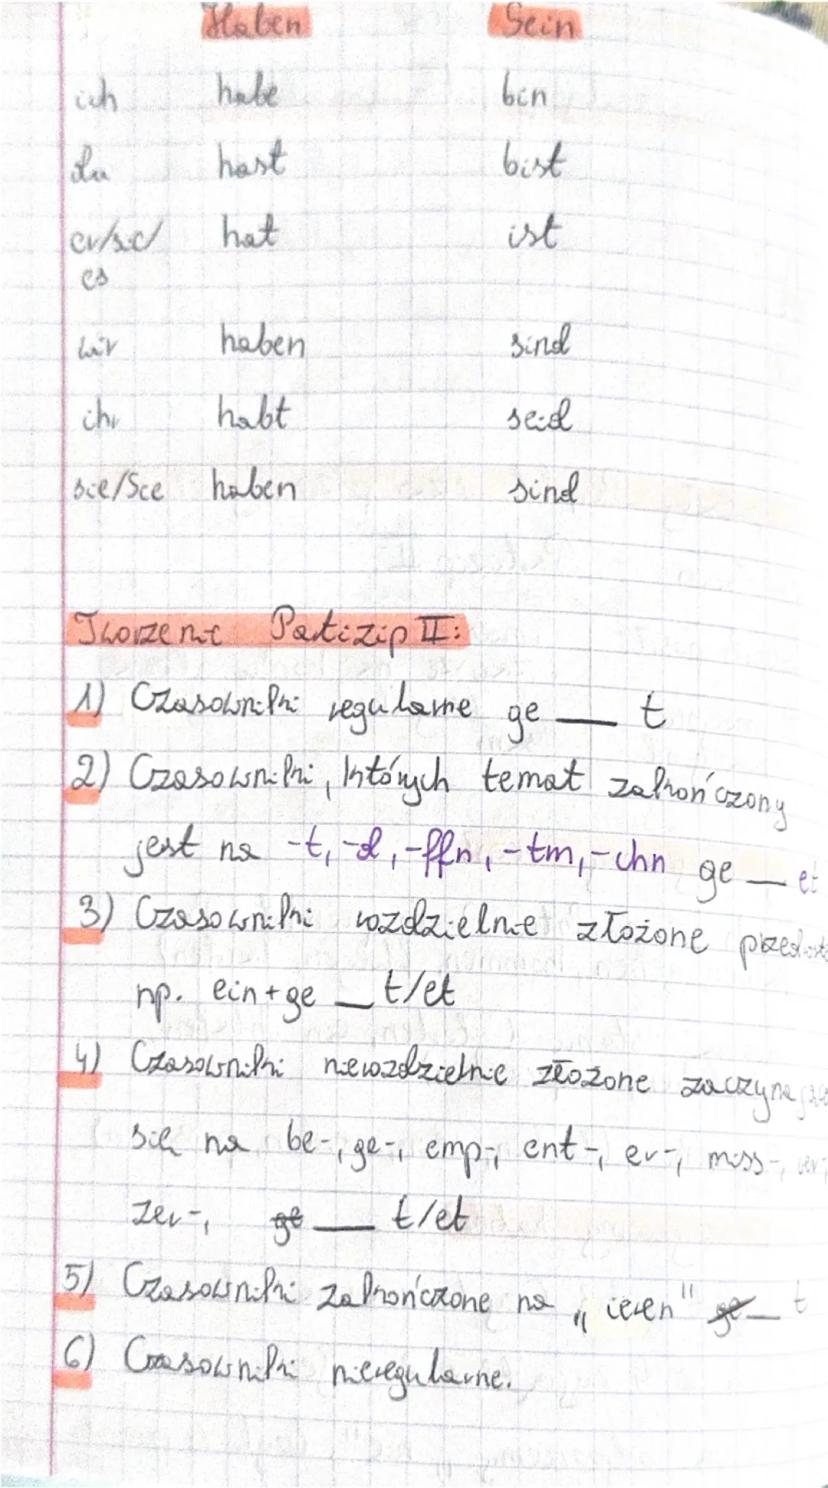 Haben Sein
ich habe bin
du hast bist
er/sie/ hat ist
es
wir haben sind
ihr habt seid
sie/Sie haben sind
Tworzenie Partizip II:
1) Czasowniki regularne ge ___ t
2) Czasowniki, których temat zakończony
jest na -t, -d, -ffn, -tm, -chn ge ___ et
3) Czasowniki rozdzielnie złożone
np. ein+ge ___ t/et
4) Czasowniki nierozdzielnie złożone
się na be-, ge-, emp-, ent-, er-, miss-, ver-,
zer-, ge ___ t/et
5) Czasowniki zakończone na „ieren" ge ___ t
6) Czasowniki nieregularne.